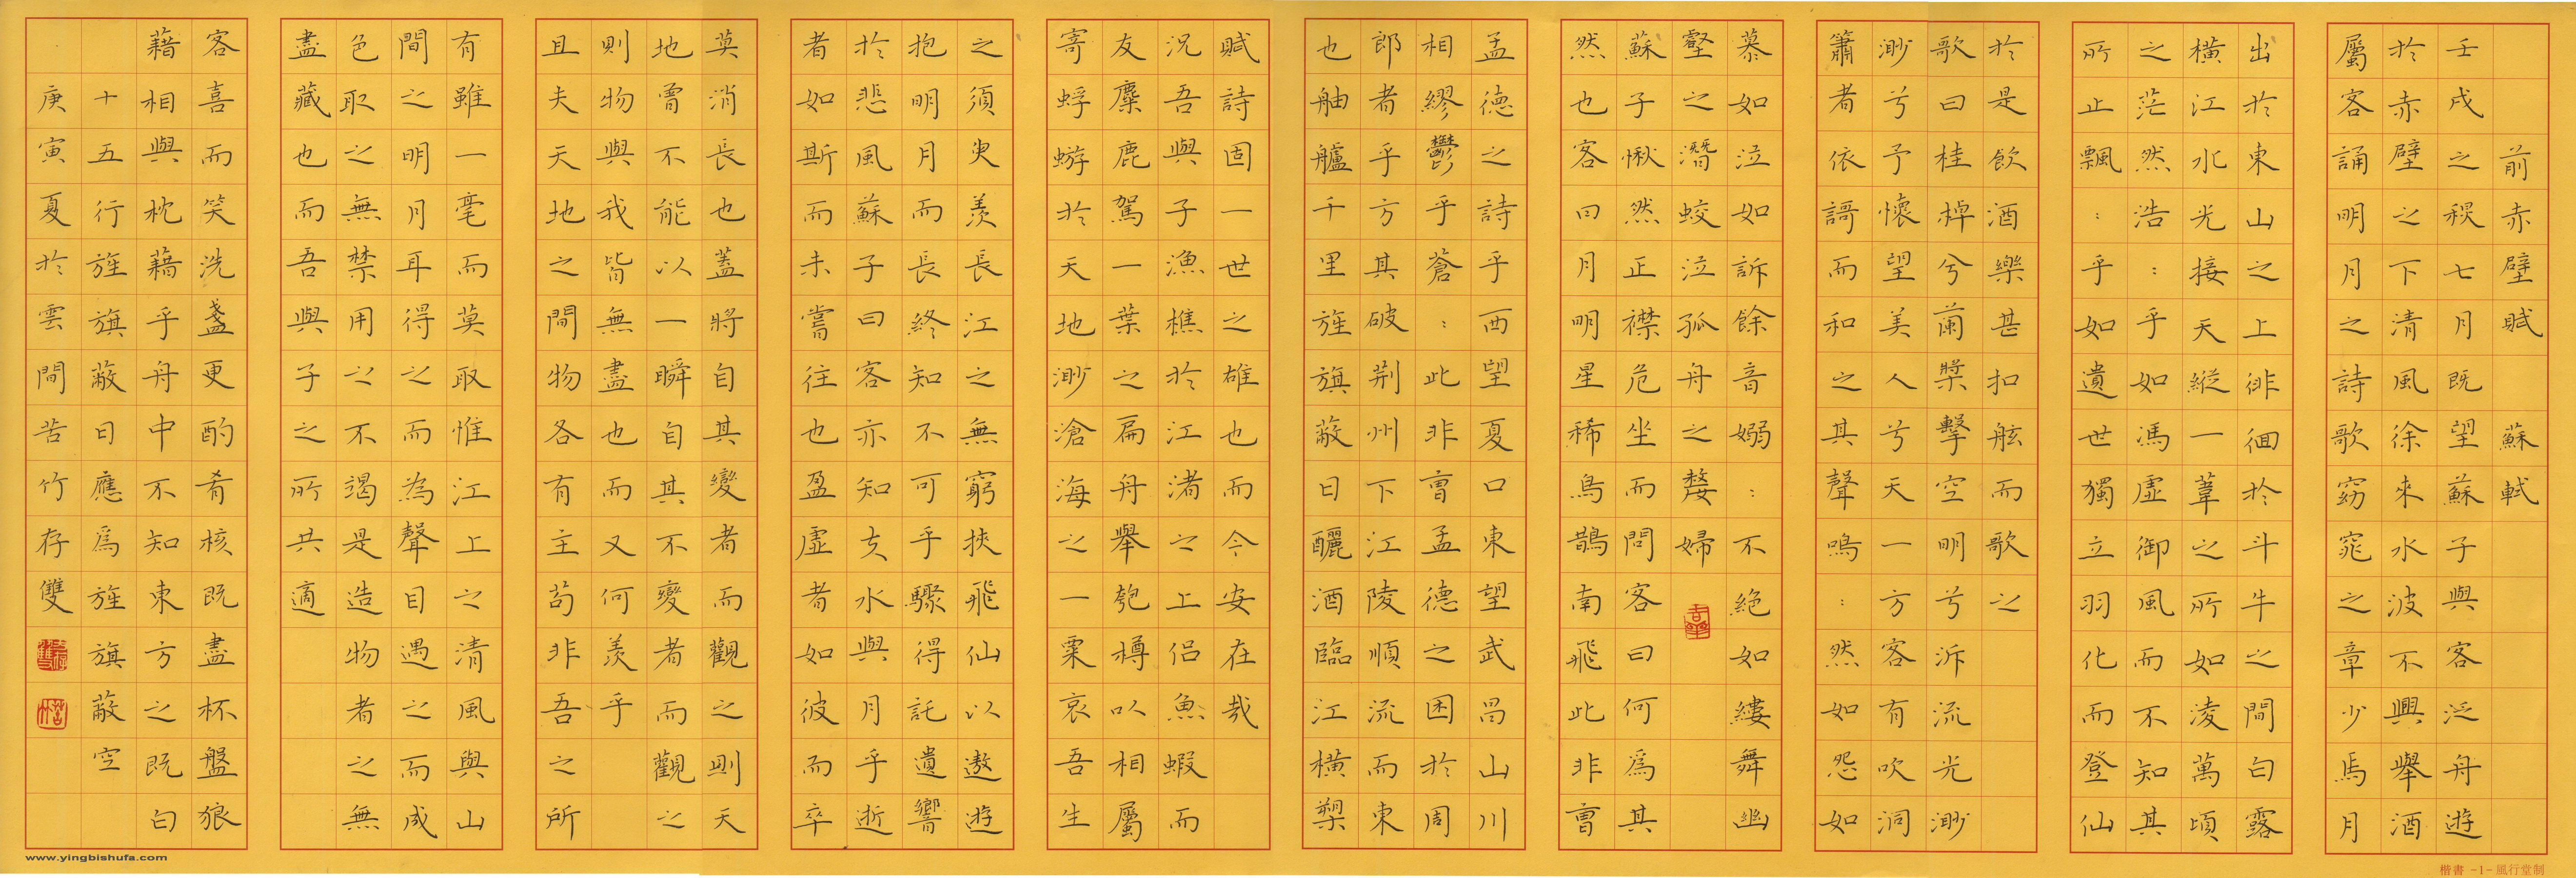 前赤壁賦 蘇軾
壬戌之秋七月既望蘇子與客泛舟遊
於赤壁之下清風徐來水波不興舉酒
屬客誦明月之詩歌窈窕之章少焉月
出於東山之上徘徊於斗牛之間白露
橫江水光接天縱一葦之所如淩萬頃
之茫然浩:乎如馮虛御風而不知其
所止飄:乎如遺世獨立羽化而登仙
於是飲酒樂甚扣舷而歌之
歌曰桂棹兮蘭槳擊空明兮泝流光渺
渺兮予懷望美人兮天一方客有吹洞
簫者依謌而和之其聲嗚:然如怨如
慕如泣如訴餘音嫋:不絕如縷舞幽
壑之潛蛟泣孤舟之嫠婦
蘇子愀然正襟危坐而問客曰何爲其
然也客曰月明星稀烏鵲南飛此非曹
孟德之詩乎西望夏口東望武昌山川
相繆鬱乎蒼:此非曹孟德之困於周
郎者乎方其破荊州下江陵順流而東
也舳艫千里旌旗蔽日釃酒臨江橫槊
賦詩固一世之雄也而今安在哉
況吾與子漁樵於江渚之上侶魚蝦而
友麋鹿駕一葉之扁舟舉匏樽以相屬
寄蜉蝣於天地渺滄海之一粟哀吾生
之須臾羨長江之無窮挾飛仙以遨遊
抱明月而長終知不可乎驟得託遺響
於悲風蘇子曰客亦知夫水與月乎逝
者如斯而未嘗往也盈虛者如彼而卒
莫消長也蓋將自其變者而觀之則天
地曾不能以一瞬自其不變者而觀之
則物與我皆無盡也而又何羨乎
且夫天地之間物各有主苟非吾之所
有雖一毫而莫取惟江上之清風與山
間之明月耳得之而為聲目遇之而成
色取之無禁用之不竭是造物者之無
盡藏也而吾與子之所共適
客喜而笑洗盞更酌肴核既盡杯盤狼
藉相與枕藉乎舟中不知東方之既白
十五行旌旗蔽日應爲旌旗蔽空
庚寅夏於雲間苦竹存雙
www.yingbishufa.com
楷書 -1- 風行堂制